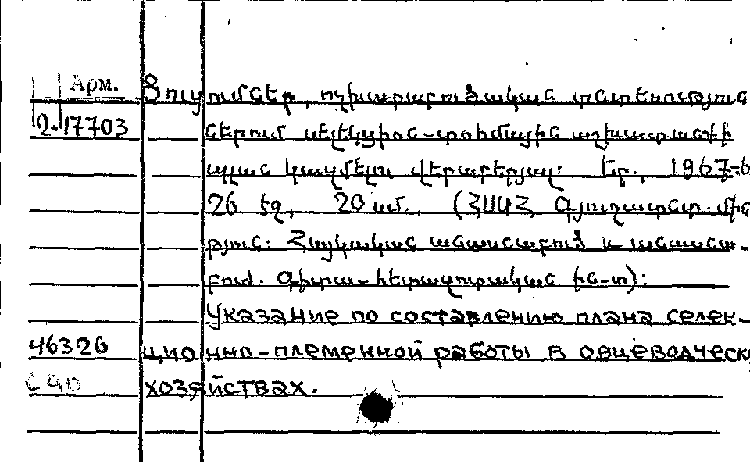 Арм. Ցուցումներ, ոչխարաբուծական տնտեսություն
2-17703 ներում սելեկցիոն-տոհմային աշխատանքի
պլան կազմելու վերաբերյալ: Եր., 1967-6
26 էջ, 20 սմ. (ՀՍՍՀ Գյուղատնտ. մի֊
րյուն: Հայկական անասնաբուծ և անասնա-
բուժ. գիտա-հետազոտական ին-տ):
Указание по составлению плана селек-
46326 ционно-племенной работы в овцеводческ
хозяйствах.